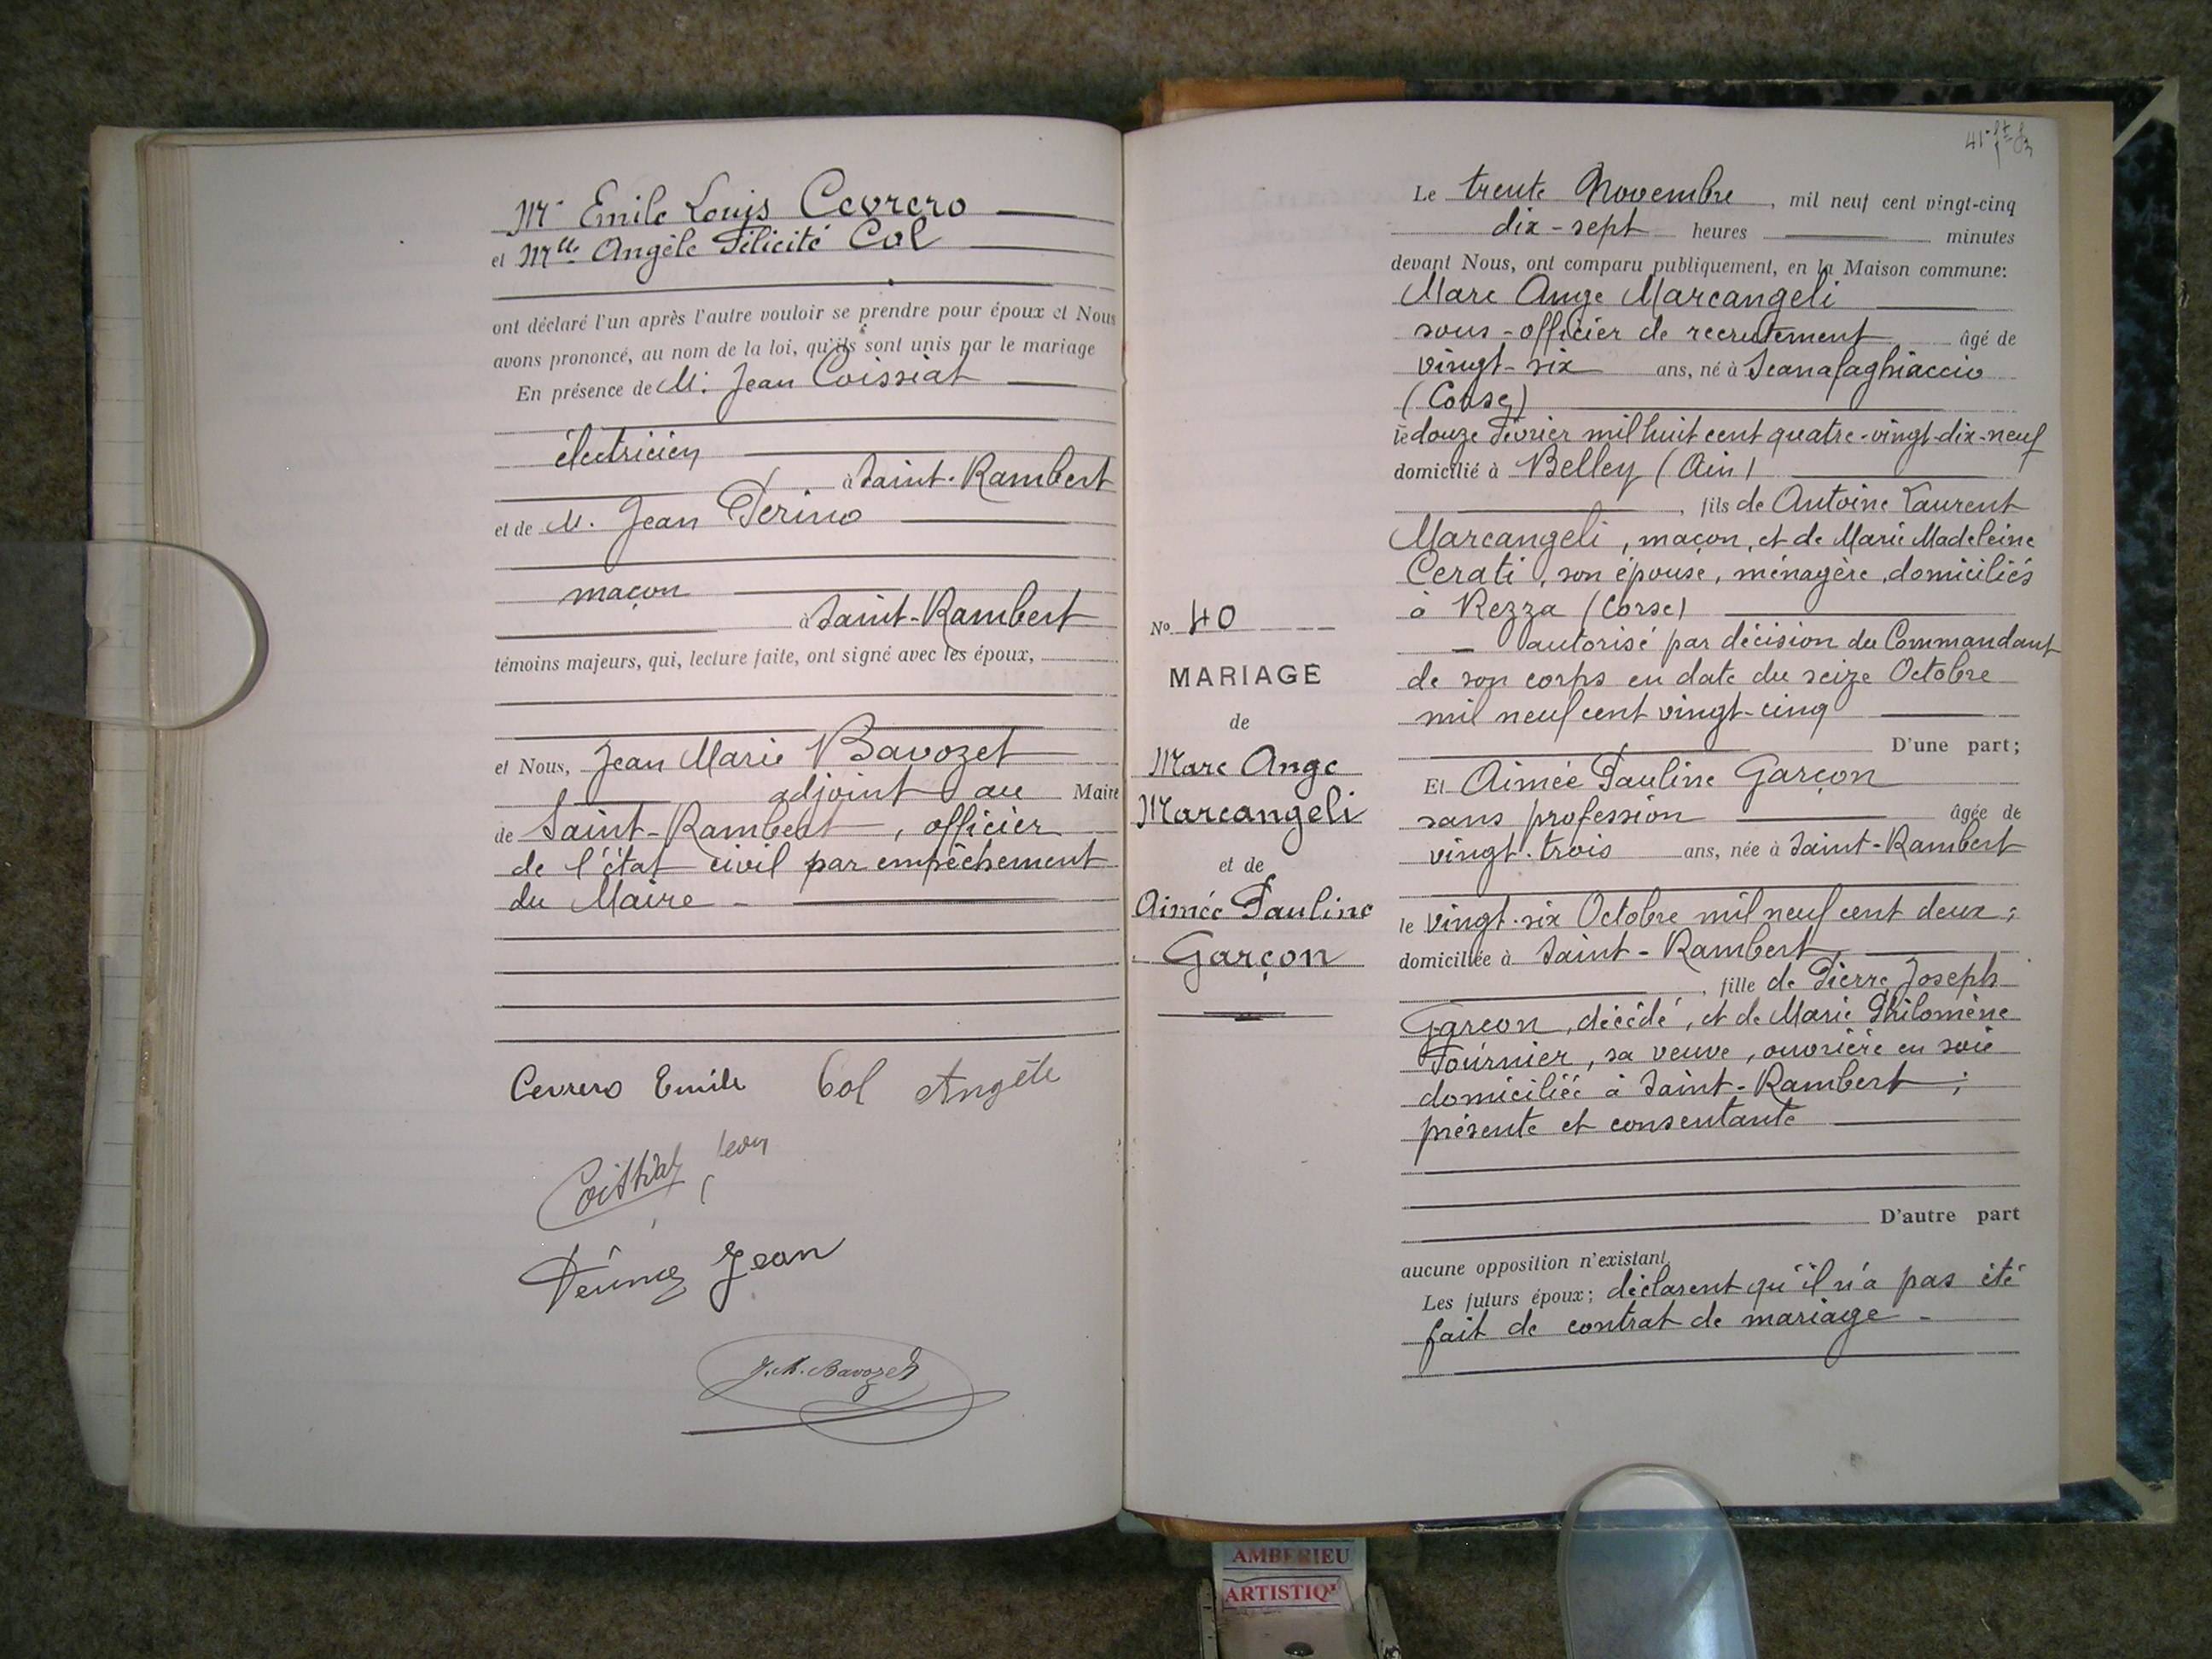 Mr Emile Louis Cevrero
et Mlle Angèle Félicité Col
ont déclaré l'un après l'autre vouloir se prendre pour époux et Nous
avons prononcé, au nom de la loi, qu'ils sont unis par le mariage
En présence de M. Jean Coissiat
électricien
à Saint-Rambert
et de M. Jean Perino
maçon
à Saint-Rambert
témoins majeurs, qui, lecture faite, ont signé avec les époux,
et Nous, Jean Marie Bavozet
adjoint au Maire
de Saint-Rambert, officier
de l'état civil par empêchement
du Maire
Cevrero Emile Col Angèle
Coissiat Jean
Jean
J.M. Bavozet
41
Le trente Novembre, mil neuf cent vingt-cinq
dix-sept heures minutes
devant Nous, ont comparu publiquement, en la Maison commune:
Marc Ange Marcangeli
sous-officier de recrutement âgé de
vingt-six ans, né à Scanafaghiaccio
(Corse)
le douze Février mil huit cent quatre-vingt-dix-neuf
domicilié à Belley (Ain)
, fils de Antoine Laurent
Marcangeli, maçon, et de Marie Madeleine
Cerati, son épouse, ménagère, domiciliés
à Rezza (Corse)
autorisé par décision du Commandant
de son corps en date du seize Octobre
mil neuf cent vingt-cinq
D'une part;
Et Aimée Pauline Garçon
sans profession âgée de
vingt-trois ans, née à Saint-Rambert
le vingt-six Octobre mil neuf cent deux;
domiciliée à Saint-Rambert,
, fille de Pierre Joseph
Garçon, décédé, et de Marie Philomène
Fournier, sa veuve, ouvrière en soie
domiciliée à Saint-Rambert;
présente et consentante
D'autre part
aucune opposition n'existant
Les futurs époux; déclarent qu'il n'a pas été
fait de contrat de mariage -
No 40
MARIAGE
de
Marc Ange
Marcangeli
et de
Aimée Pauline
Garçon
AMBERIEU
ARTISTIQ